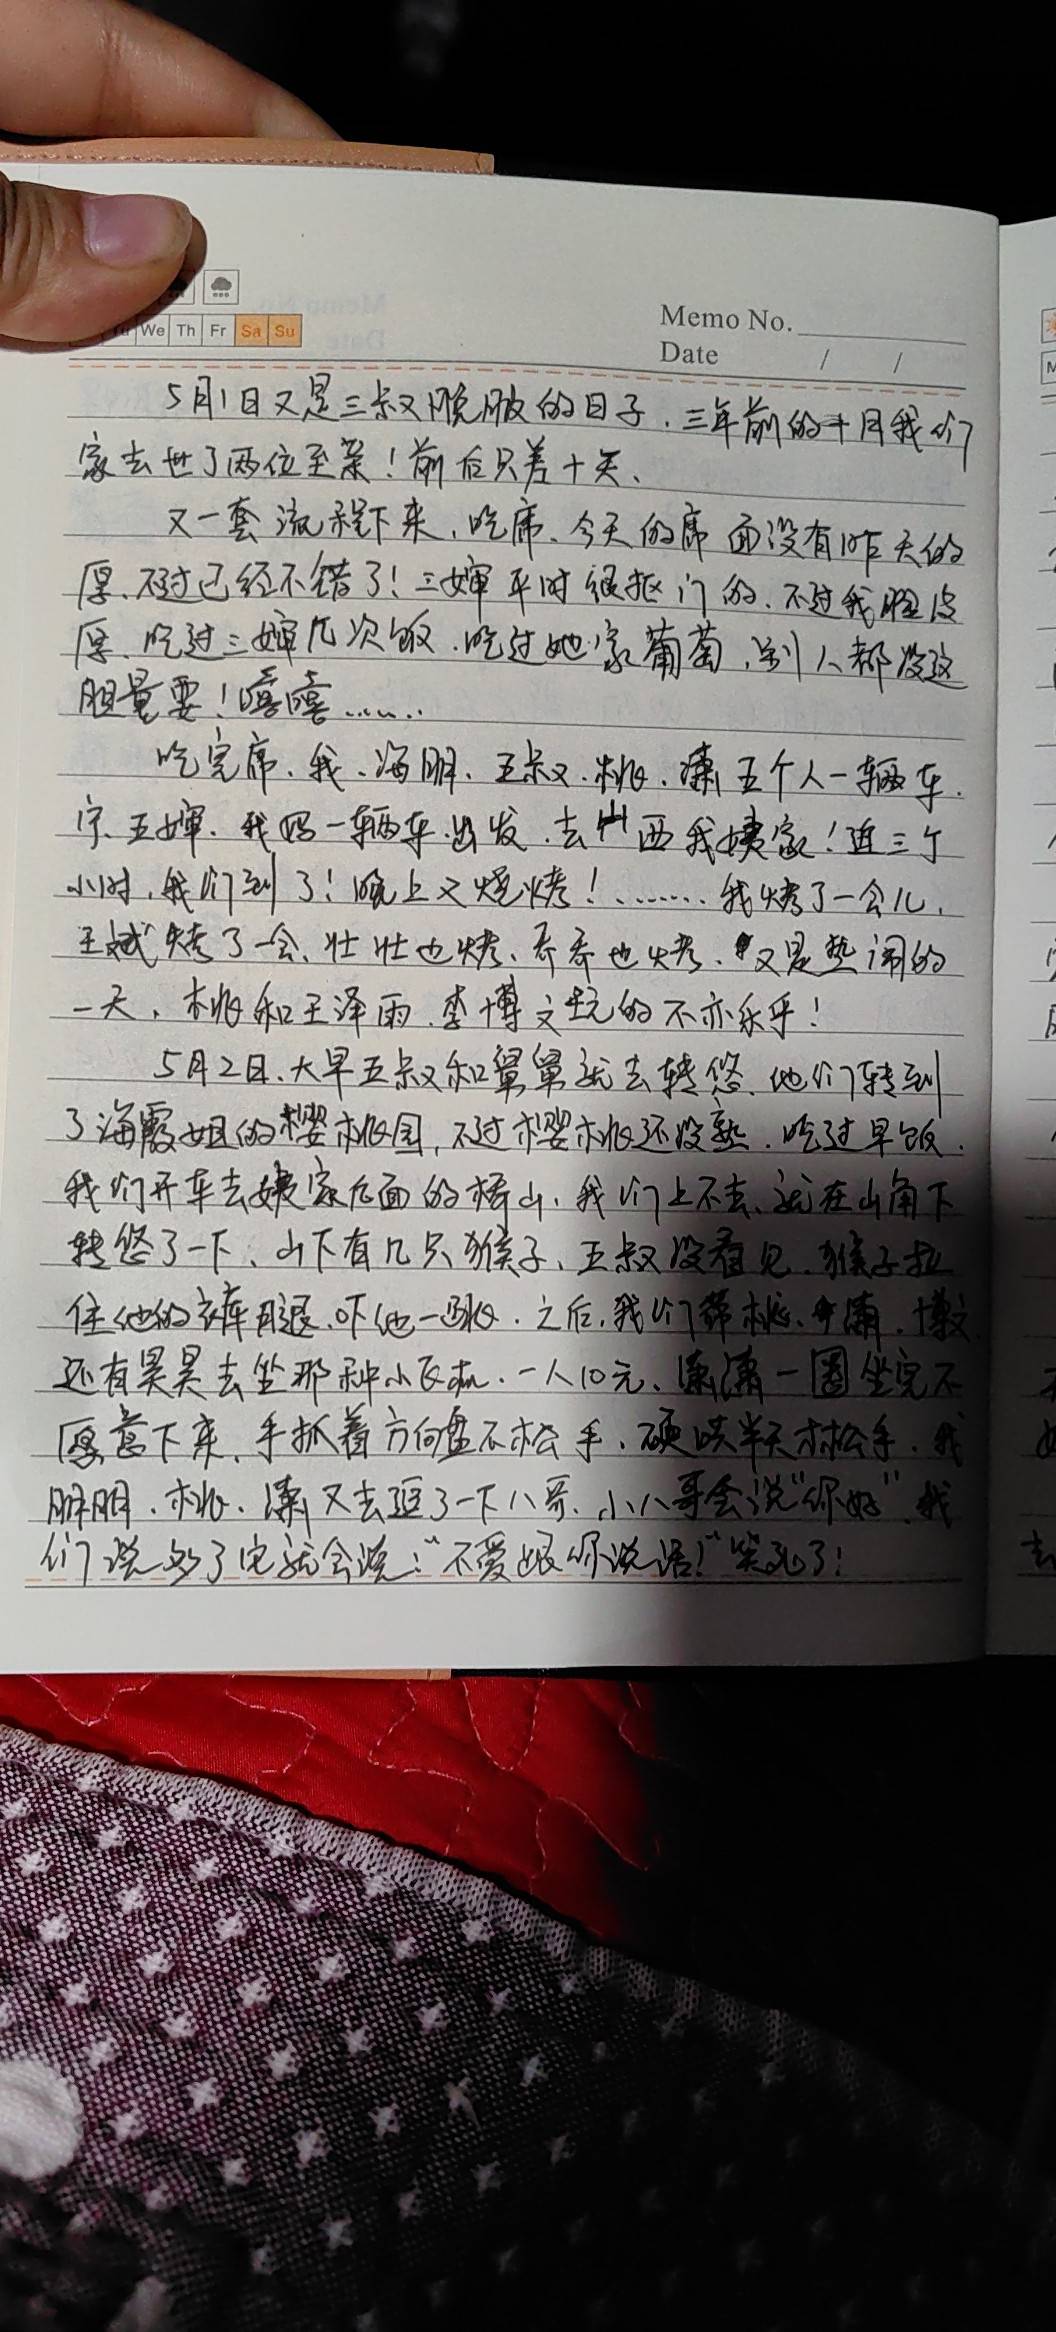 We Th Fr Sa Su
Memo No.
Date / /
5月1日又是三叔脱服的日子.三年前的十月我们
家去世了两位至亲!前后只差十天、
又一套流程下来,吃席、今天的席面没有昨天的
厚、不过已经不错了!三婶平时很抠门的、不过我脸皮
厚、吃过三婶几次饭.吃过她家葡萄,别人都没这
胆量要!嘻嘻……
吃完席、我、海朋、五叔、桃、潇五个人一辆车.
宗、五婶、我妈一辆车出发.去山西我姨家!近三个
小时,我们到了!晚上又烧烤!………我烤了一会儿,
王斌烤了一会、壮壮也烤、乔乔也烤、又是热闹的
一天,桃和王泽雨.李博文玩的不亦乐乎!
5月2日、大早五叔和舅舅就去转悠.他们转到
了海霞姐的樱桃园,不过樱桃还没熟.吃过早饭.
我们开车去姨家后面的山,我们上不去、就在山角下
转悠了一下、山下有几只猴子、五叔没看见.猴子拉
住他的裤腿.吓他一跳.之后,我们带桃、潇.博文
还有昊昊去坐那种小飞机.一人10元、潇潇一圈坐完不
愿意下来、手抓着方向盘不松手、硬哄半天才松手.我
胖朋.桃.潇又去逗了一下八哥、小八哥会说"你好".我
们说多了它就会说:"不爱跟你说话!"笑死了!